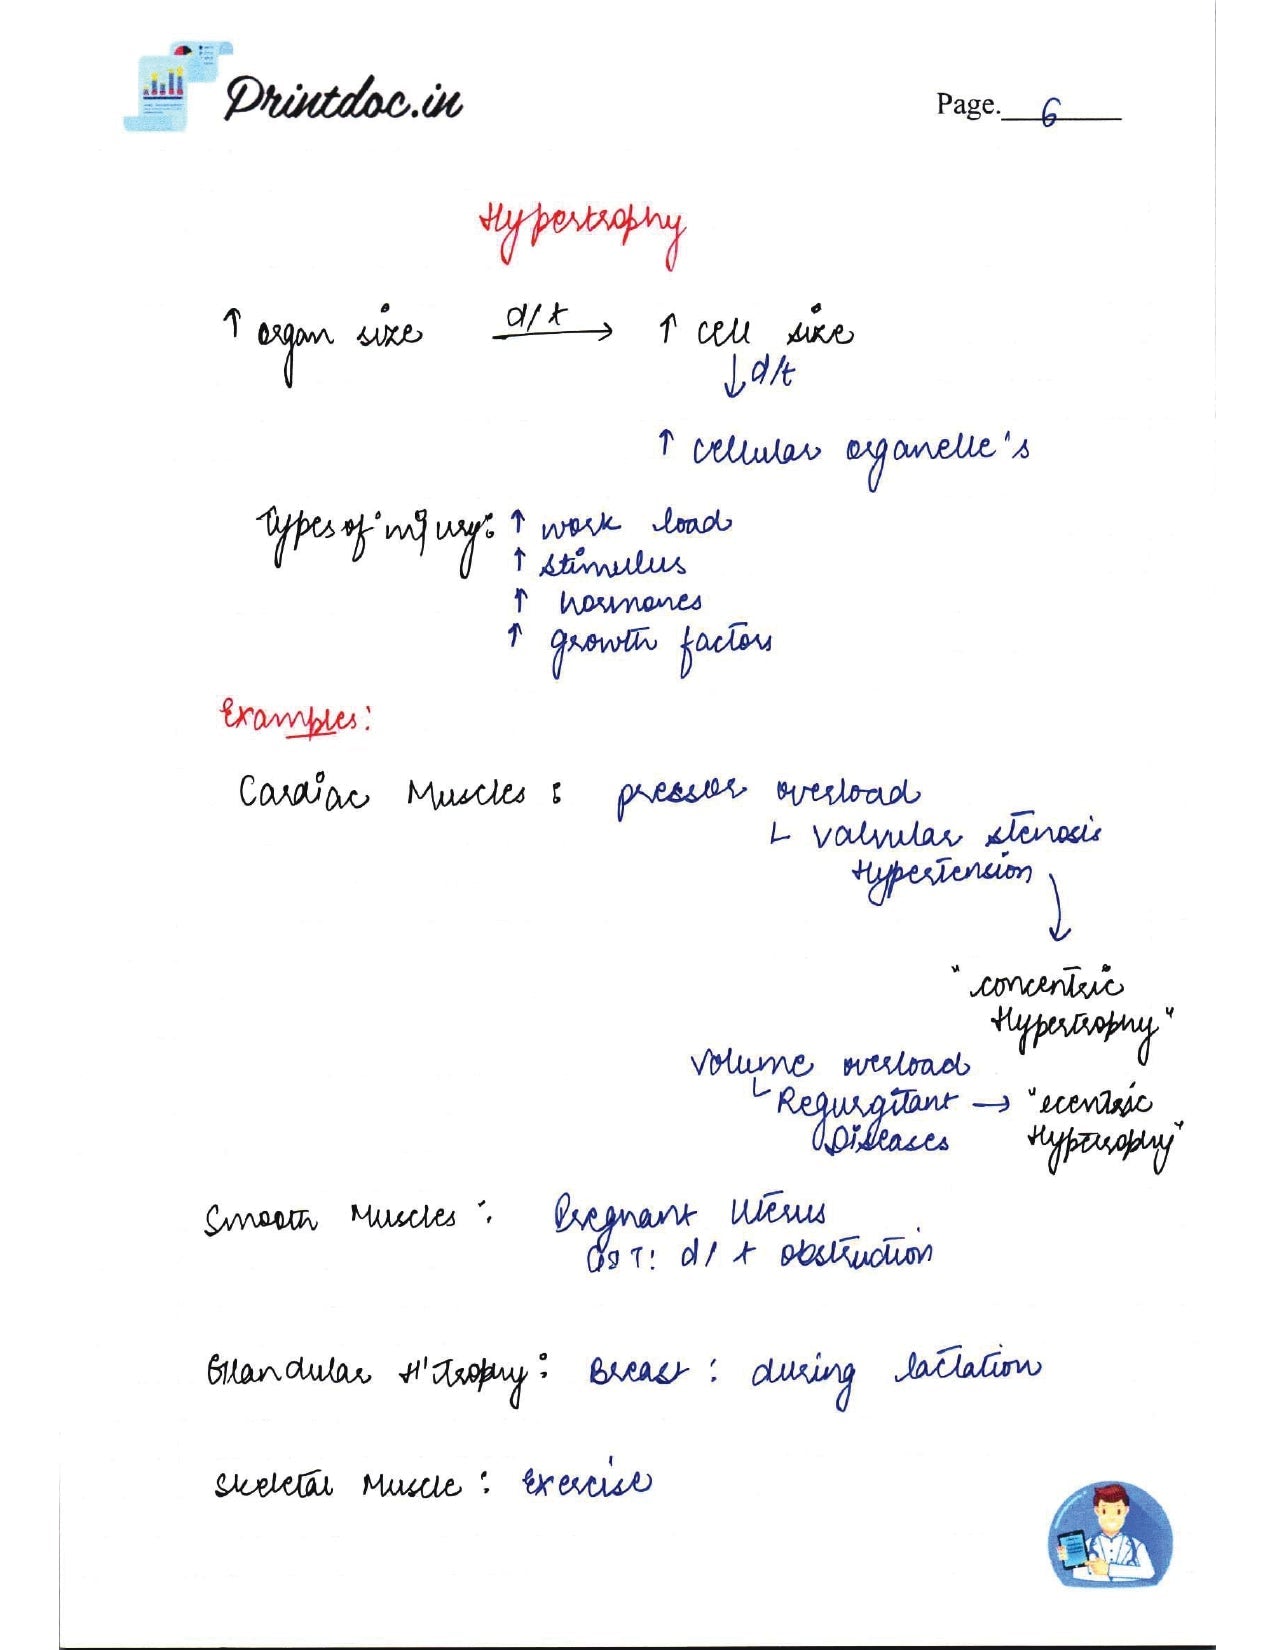 Printdoc.in
Page. 6
Hypertrophy
↑ organ size d/t → ↑ cell size
↓ d/t
↑ cellular organelle's
Types of injury: ↑ work load
↑ stimulus
↑ hormones
↑ growth factors
Examples:
Cardiac Muscles : pressor overload
└ valvular stenosis
Hypertension
"concentric
Hypertrophy"
Volume overload
└ Regurgitant → "ecentric
Diseases Hypertrophy"
Smooth Muscles : Pregnant Uterus
: d/t obstruction
Glandular H'Trophy : Breast : during lactation
Skeletal Muscle : Exercise